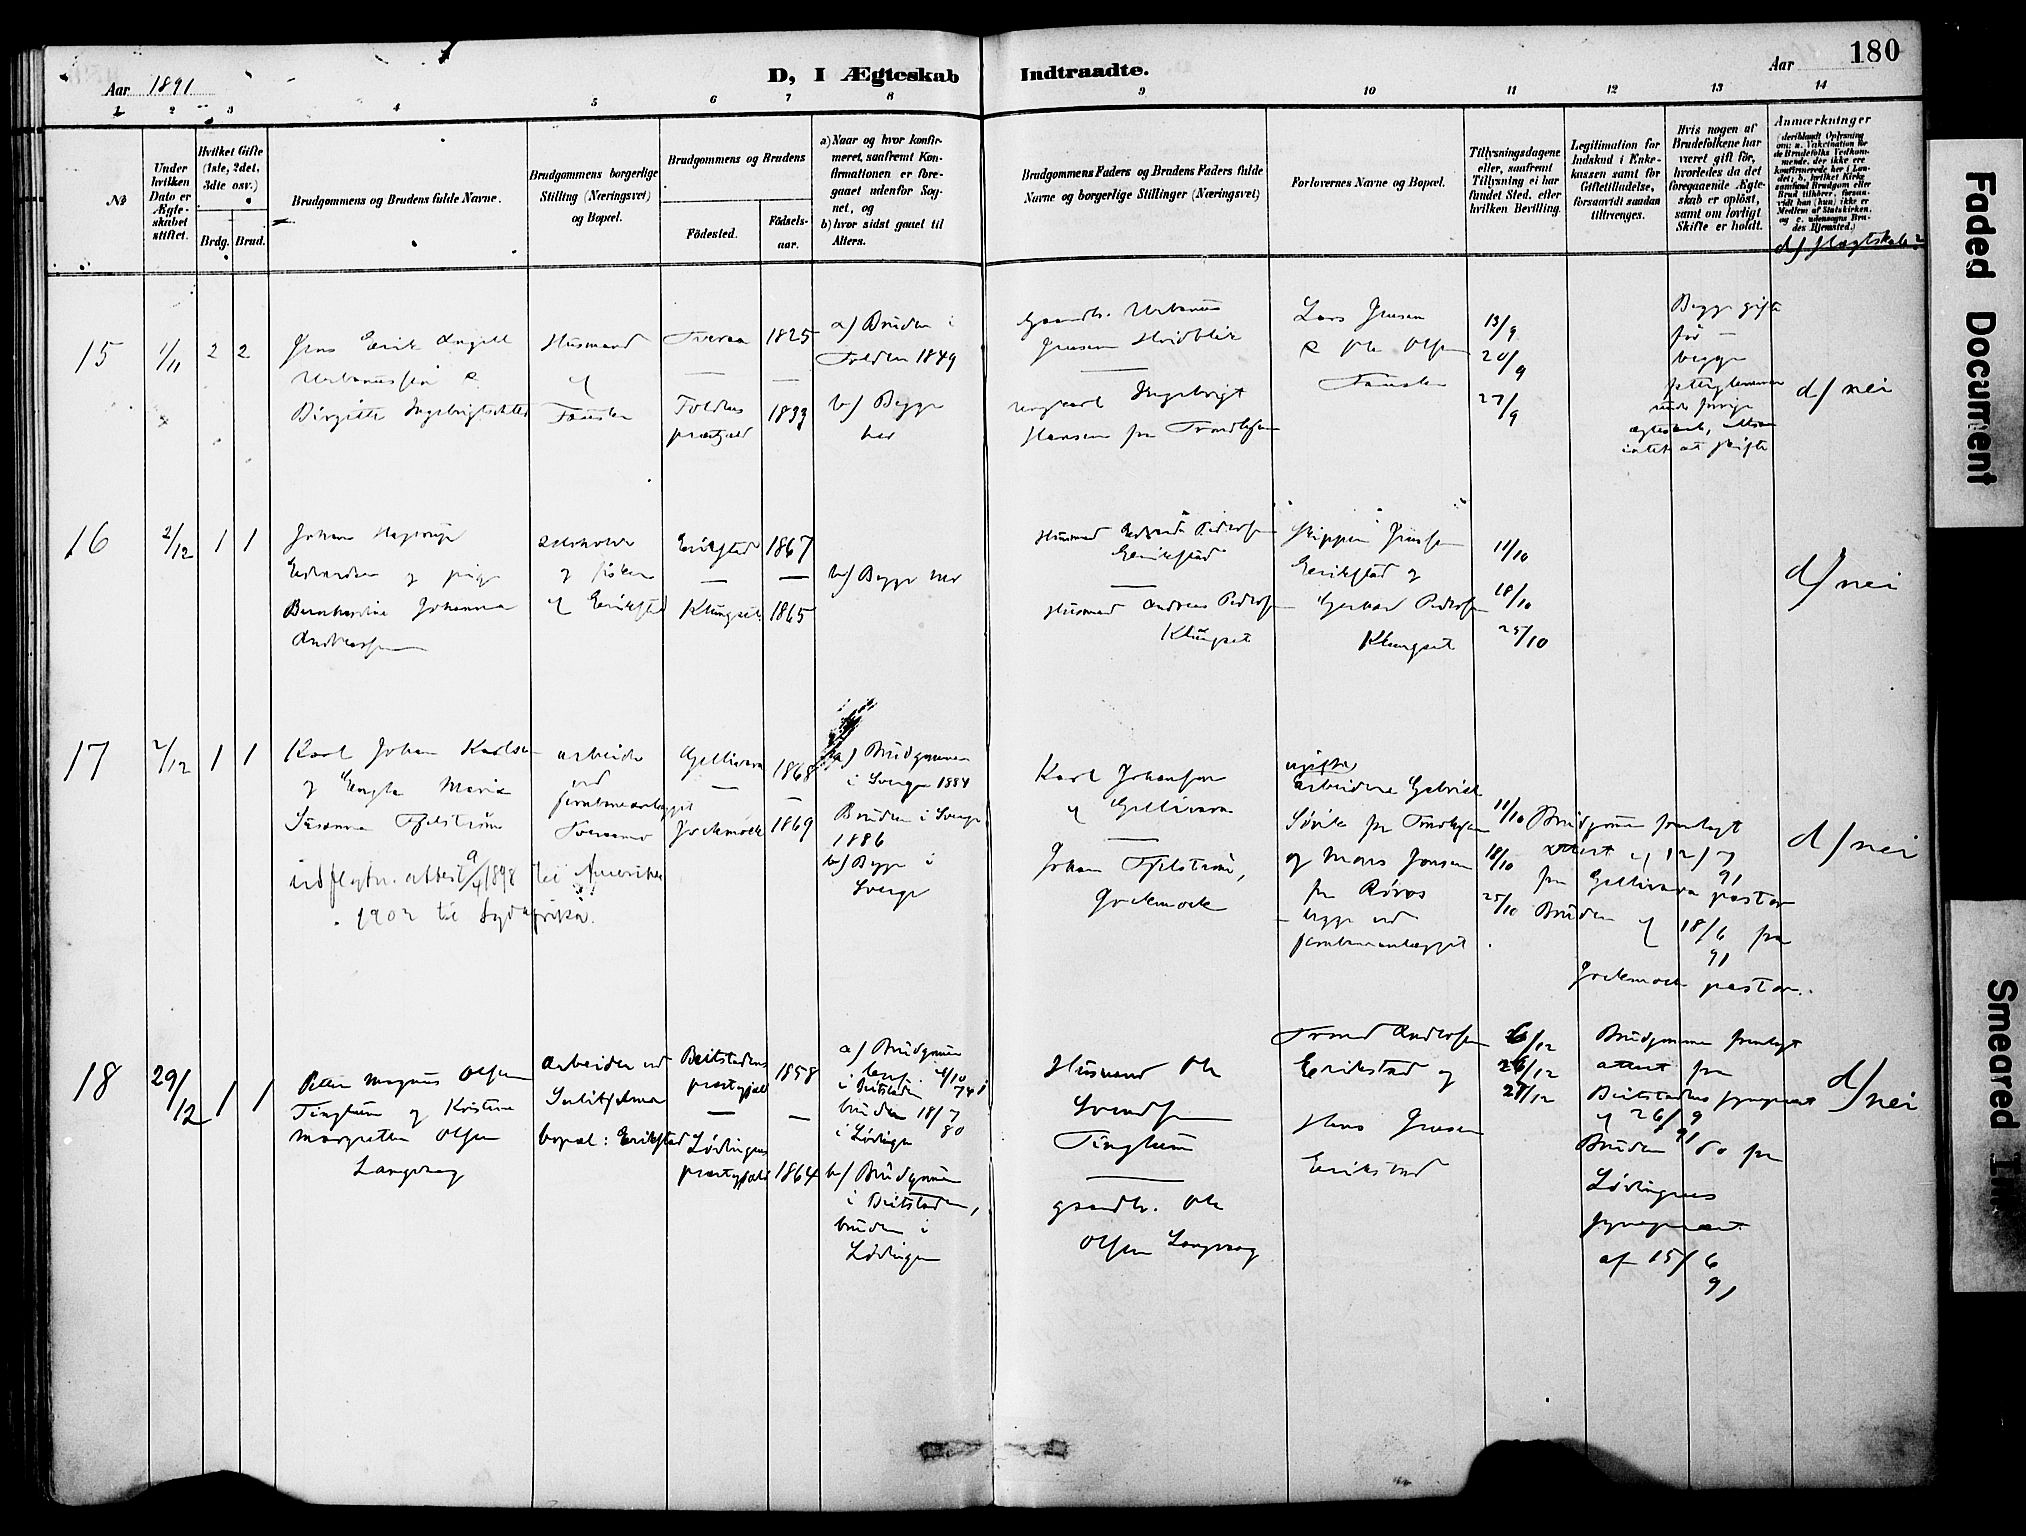 180
Aar 1891
D, I Ægteskab Indtraadte.
Aar
1 2 3 4 5 6 7 8 9 10 11 12 13 14
No
Under hvilken Dato er Ægteskabet stiftet.
Hvilket Gifte (1ste, 2det, 3dte osv.)
Brdg. Brud.
Brudgommens og Brudens fulde Navne.
Brudgommens borgerlige Stilling (Næringsvei) og Bopæl.
Brudgommens og Brudens
Födested.
Födselsaar.
a) Naar og hvor konfirmeret, saafremt Konfirmationen er foregaaet udenfor Sognet, og
b) hvor sidst gaaet til Alters.
Brudgommens Faders og Brudens Faders fulde Navne og borgerlige Stillinger (Næringsvei)
Forlovernes Navne og Bopæl.
Tillysningsdagene eller, saafremt Tillysning ei har fundet Sted, efter hvilken Bevilling.
Legitimation for Indskud i Enkekassen samt for Giftetilladelse, forsaavidt saadan tiltrænges.
Hvis nogen af Brudefolkene har været gift før, hvorledes da det foregaaende Ægteskab er opløst, samt om lovligt Skifte er holdt.
Anmærkninger (deriblandt Oplysning om: a. Vakcination for de Brudefolks Vedkommende, der ikke ere konfirmerede her i Landet; b. hvilket Kirkesamfund Brudgom eller Brud tilhører, forsaavidt han (hun) ikke er Medlem af Statskirken, og c. udensogns Brudes Hjemsted.)
d) slægtskab?
15
1/11
2 2
Jens Erik Angell
Urbanussen &
Birgitte Ingebrigtsdtr
Husmand
af
Fauske
Tveraa 1825
Foldens
præstgjeld 1833
a) Bruden i
Folden 1849
b) Begge
her
Gaardbr. Urbanus
Jensen Hvidblik
Ingebrigt
Hansen fra Trondhjem
Lars Jensen
& Ole Olsen
Fauske
13/9
20/9
27/9
Begge gifte
før
begge
under forrige
ægteskab, altsaa
intet at skifte
d/ nei
16
2/12
1 1
Johan Hagerup
Edvardsen og pige
Bernhardine Johanna
Andreassen
og fisker
af Erikstad
Erikstad 1867
Klungset 1865
b/ Begge her
Husmd Edvard Pedersen
Erikstad
Husmd Andreas Pedersen
Klungset
Skipper Jensen
Erikstad og
Gerhard Pedersen
Klungset
11/10
18/10
25/10
d/ nei
17
2/12
1 1
Karl Johan Karlsen
og Engla Maria
Susanna Fjelström
udflytn. attest 9/4 1898 til Amerika
1902 til Sydafrika.
arbeider
ved
jernbaneanlægget
Gellivara 1868
Jockmock 1869
a) Brudgommen
i Sverige 1884
Bruden i Sverige
1886
b) Begge i
Sverige
Karl Johansen
af Gellivara
Johan Fjelström,
Jockmock
ugifte
arbeidere Gabriel
Søvik fra Trondhjem
og Mons Jonsen
fra Røros
begge ved
jernbaneanlægget
11/10
18/10
25/10
Brudgommen fremlagt
attest af 12/7 91
fra Gellivara pastor
Bruden af 18/6 91 fra
Jockmock pastor.
d/ nei
18
29/12
1 1
Peter Magnus Olsen
Tinglum og Kristine
Margrethe Olsen
Langvaag
arbeider ved
Sulitjelma
bopæl: Erikstad
Beitstadens
præstegjeld 1858
Lødingens
præstegjeld 1864
a) Brudgommen
konf. 4/10 74
i Beitstaden
bruden 18/7 80
i Lødingen
b/ Brudgommen
i Beitstaden,
bruden i
Lødingen
Husmand Ole
Svendsen
Tinglum
gaardbr. Ole
Olsen Langvaag
Trond Andersen
Erikstad og
Hans Jensen
Erikstad
6/12
26/12
27/12
Brudgommen fremlagt
attest fra
Beitstadens sogneprest
af 26/9 91
Bruden do fra
Lødingens
sogneprest
af 15/6 91
d/ nei
Faded Document
Smeared Ink